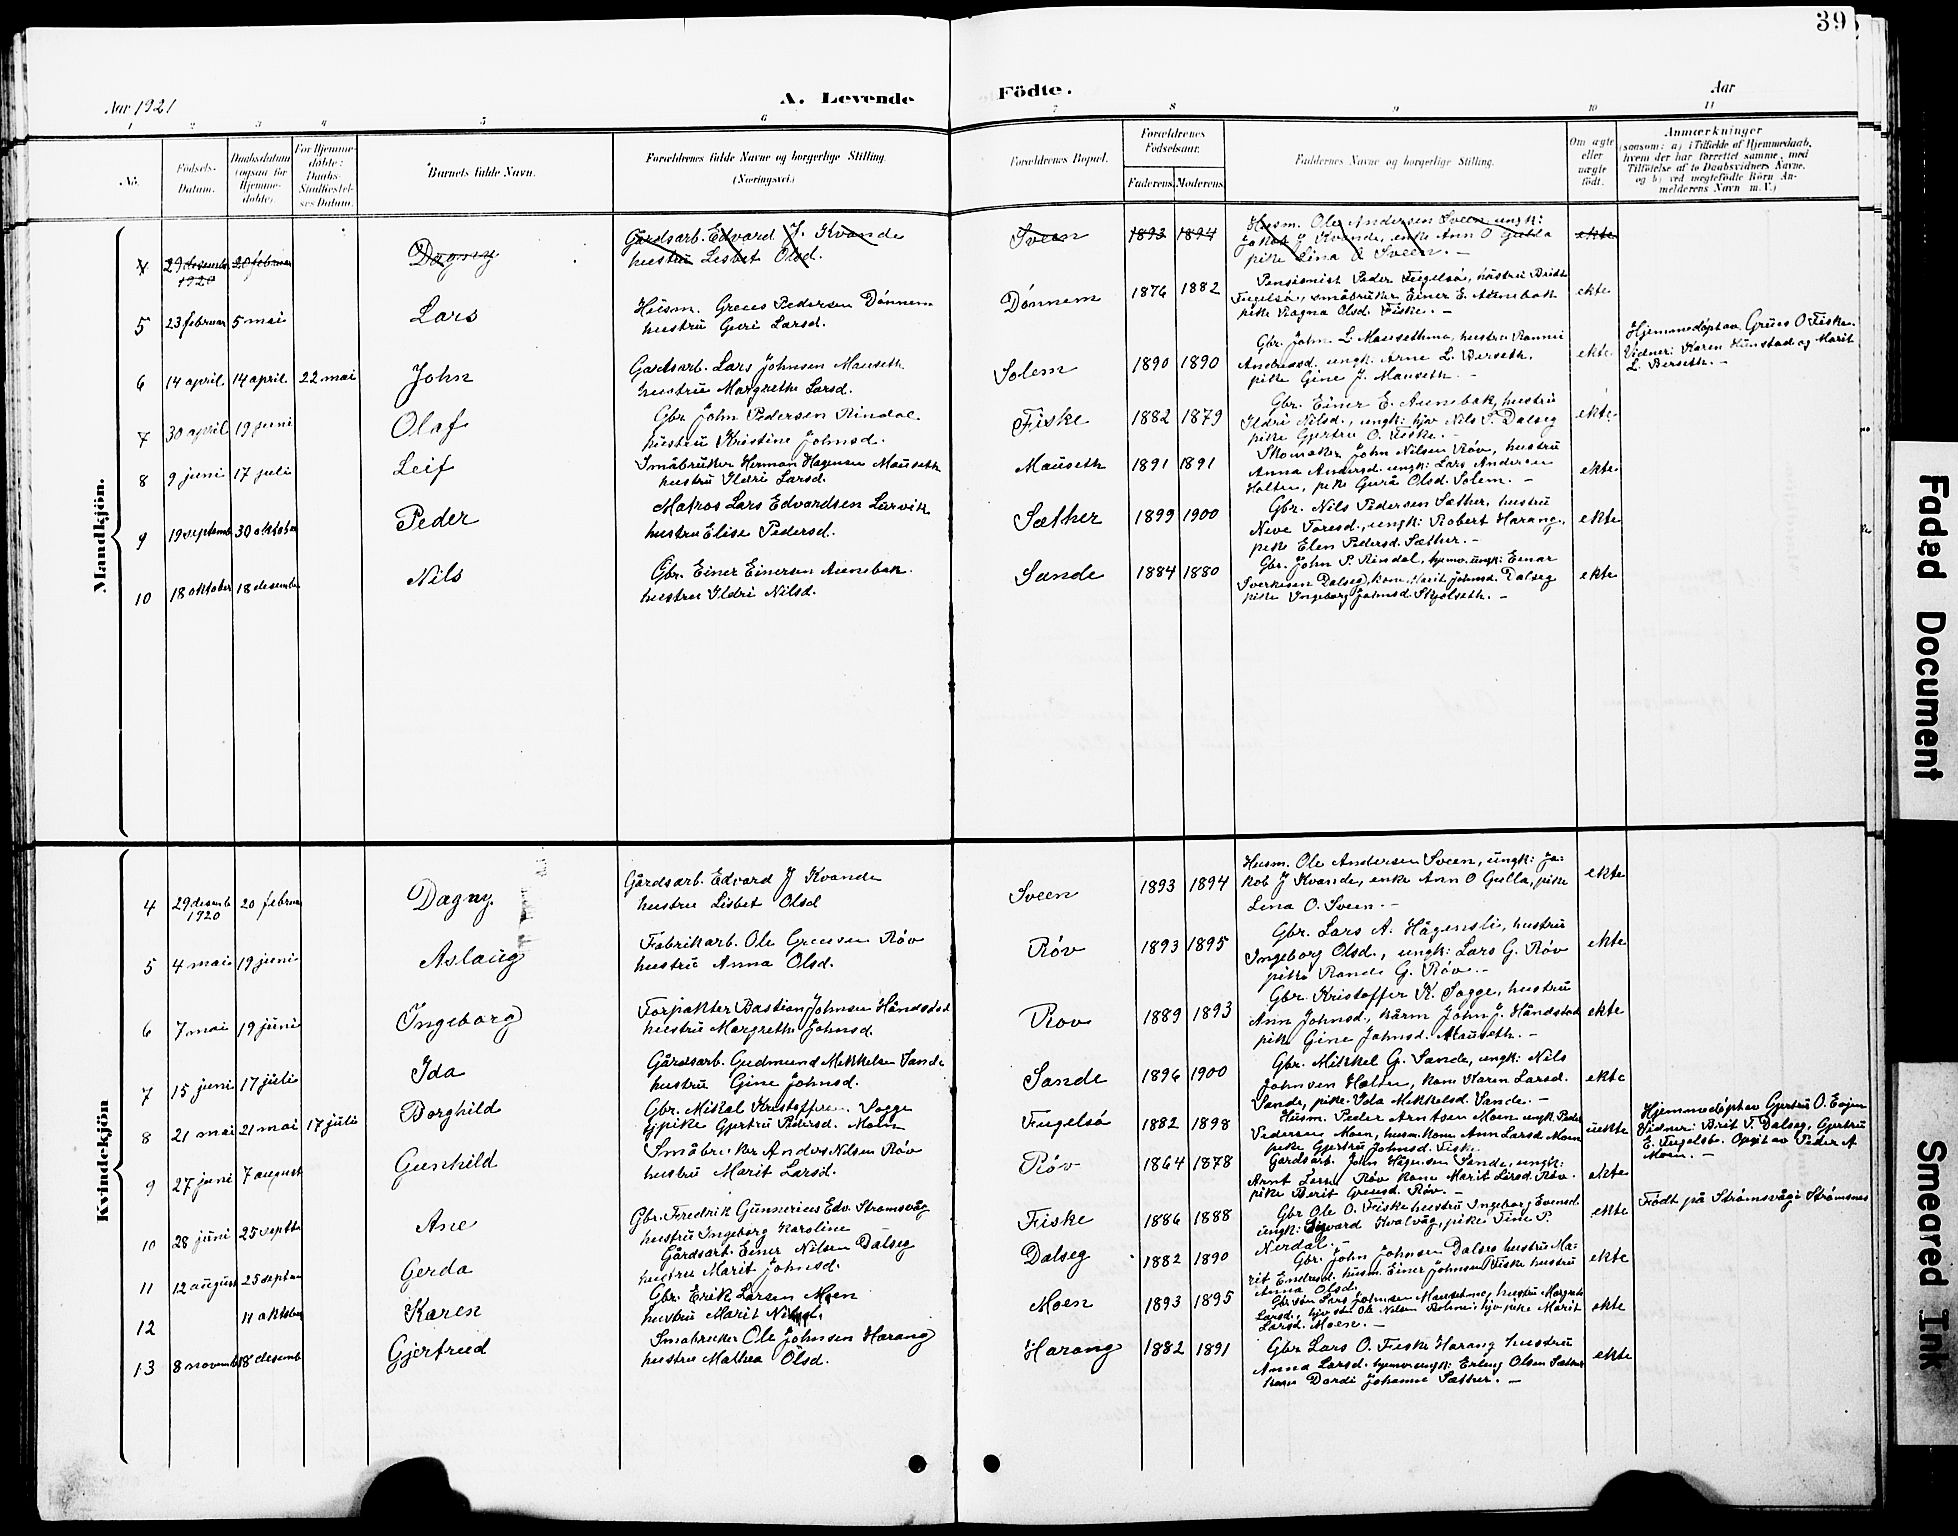 39
Aar 1921
A. Levende Födte.
Aar
1 2 3 4 5 6 7 8 9 10 11
No.
Födsels-Datum.
Daabsdatum (ogsaa for Hjemmedöbte).
For Hjemmedöbte: Daabs-Stadfæstelses-Datum.
Barnets fulde Navn.
Forældrenes fulde Navne og borgerlige Stilling. (Næringsvei.)
Forældrenes Bopæl.
Forældrenes Fødselsaar.
Faderens. Moderens.
Faddernes Navne og borgerlige Stilling.
Om ægte eller uægte födt.
Anmærkninger
(saasom: a) i Tilfælde af Hjemmedaab,
hvem der har forrettet samme, med
Tilföielse af to Daabsvidners Navne,
og b) ved uægtefödte Börn An-
melderens Navn m. V.)
Mandkjön.
4 29 desemb. 1920 20 februar Dagny
Gårdsarb. Edvard J. Kvande
hustru Lisbet Olsd.
Sveen 1893 1894
Husm. Ole Andersen Sveen, ungk:
Jakob J Kvande, enke Ann O Gulla
pike Lina O Sveen. —
ekte
5 23 februar 5 mai Lars
Husm. Greus Pedersen Dønnem
hustru Guri Larsd.
Dønnem 1876 1882
Pensionist Peder Fugelsøi, hustru Bridt
Fugelsø, småbruker Einer E. Aunebak
pike Ragna Olsd. Fiske. —
ekte
6 14 april 14 april 22 mai John
Gardsarb. Lars Johnsen Mauseth
hustru Margrethe Larsd.
Solem 1890 1890
Gbr. John L. Mausethmo, hustru Rannei
Andreasd. ungk. Arne L. Berseth,
pike Gine J. Mauseth. —
ekte.
Hjemmedøpt av Greus O Fiske.
Vidner: Karen Hunstad og Marit
L. Berseth. —
7 30 april 19 juni Olaf
Gbr John Pedersen Rindal
hustru Kristine Johnsd.
Fiske 1882 1879
Gbr. Einer E. Aunebak, hustru
Ildri Nilsd., ungk: hjv Nils T. Dalseg
pike Gjertru O. Fiske. —
ekte
8 9 juni 17 juli Leif
Småbruker Herman Hagensen Mauseth
hustru Ildri Larsd.
Mauseth 1891 1891
Skomaker John Nilsen Røv, hustru
Anna Andersd. ungk: Lars Andersen
Holten, pike Guru Olsd. Solem. —
ekte
9 19 septemb 30 oktober Peder
Matros Lars Edvardsen Lervik
hustru Elise Pedersd.
Sæther 1899 1900
Gbr. Nils Pedersen Sæther, hustru
Neve Toresd., ungk: Robert Harang,
pike Elen Pedersd. Sæther. —
ekte
10 18 oktober 18 desember Nils
Gbr. Einer Einersen Aunebak
hustru Ildri Nilsd.
Sande 1884 1880
Gbr. John P. Rindal, hjemv. ungk: Einar
Sverkesen Dalseg, kone Marit Johnsd. Dalseg
pike Ingeborg Johnsd. Skjølseth. —
ekte
Kvindekjön
4 29 desemb 1920 20 februa Dagny.
Gårdsarb. Edvard J Kvande
hustru Lisbet Olsd
Sveen 1893 1894
Husm. Ole Andersen Sveen, ungk: Ja-
kob J Kvande, enke Ann O Gulla, pike
Lina O. Sveen. —
ekte
5 4 mai 19 juni Aslaug
Fabrikarb. Ole Greusen Røv
hustru Anna Olsd.
Røv 1893 1895
Gbr. Lars A. Hågensli, hustru
Ingeborg Olsd., ungk: Lars G. Røv
pike Randi G. Røv. —
ekte
6 7 mai 19 juni Ingeborg
Forpakter Bastian Johnsen Håndstad
hustru Margrethe Johnsd.
Røv 1889 1893
Gbr. Kristoffer K. Sogge, hustru
Ann Johnsd., kårm John J. Håndstad
pike Gine Johnsd. Mauseth. —
ekte
7 15 juni 17 juli Ida
Gårdsarb. Gudmund Mikkelsen Sande
hustru Gine Johnsd.
Sande 1896 1900
Gbr. Mikkel G. Sande, ungk: Nils
Johnsen Holten, kone Karen Larsd.
Sande, pike. Ida Mikkelsd. Sande. —
ekte
8 21 mai 21 mai 17 juli Borghild
Gbr. Mikal Kristoffersen Sogge
Gpike Gjertru Pedersd. Moen
Fugelsø 1882 1898
Husm. Peder Arntsen Moen ungk. Peder
Pedersen Moen, husm. kone Ann Larsd. Moen
pike Gjertru Johnsd. Fiske.
uekte
Hjemmedøpt av Gjertru O. Enjen
Vidner: Brit T. Dalseg, Gjertru
E. Fugelsø. Opgit av Peder A
Moen. —
9 27 juni 7 august Gunhild
Småbruker Anders Nilsen Røv
hustru Marit Larsd.
Røv 1864 1878
Gardsarb. John Hågensen Sande, ungk:
Arnt Larsen Røv kone Marit Larsd. Røv.
pike Berit Greusd. Røv. —
ekte
10 28 juni 25 septbr Ane
Gbr. Fredrik Gunnerius Edv. Strømsvåg
hustru Ingeborg Karoline
Fiske 1886 1888
Gbr Ole O. Fiske hustru Ingeborg Evensd.
ungk: Sigvard Hvalvåg, pike Tine P.
Nerdal. —
ekte
Født på Strømsvåg i Strømsnes
11 12 august 25 septem Gerda
Gårdsarb. Einer Nilsen Dalseg
hustru Marit Johnsd.
Dalseg 1882 1890
Gbr. John Johnsen Dalseg hustru Ma-
rit Endresd. husm. Einer Johnsen Fiske hustru
Anna Olsd.
ekte
12 11 oktober Karen
Gbr. Erik Larsen Moen
hustru Marit Nilsd.
Moen 1893 1895
Larsd. Moen. —
ekte
13 8 novemb 18 desemb Gjertrud
Småbruker Ole Johnsen Harang
hustru Mathea Olsd.
Harang 1882 1891
Gbr Lars O. Fiske Harang hustru
Anna Larsd. hjemv. ungk: Erling Olsen Sæther
kone Dordi Johanne Sæther. —
ekte
Faded Document
Smeared Ink